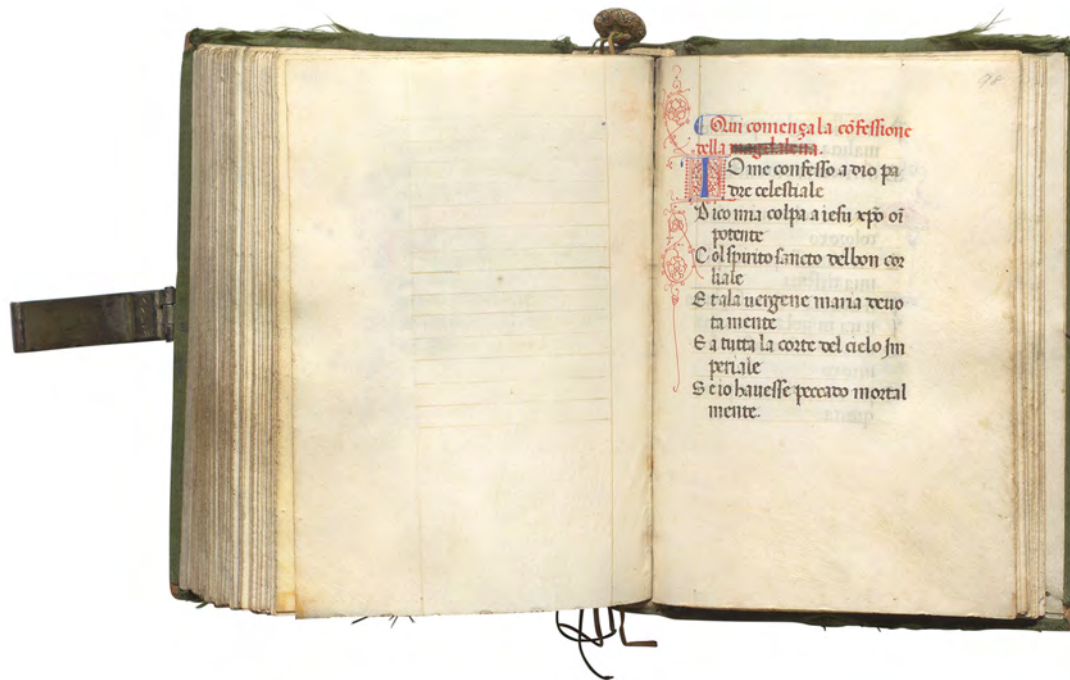 98
Qui comenza la cōfessione
della magdalena.
IO me confesso a dio pa
dre celestiale
Dico mia colpa a iesu xp̄o oī
potente
Col spirito sancto del bon cor
liale
Et a la uergene maria deuo
tamente
E a tutta la corte del cielo im
periale
Se io hauesse peccato mortal
mente.